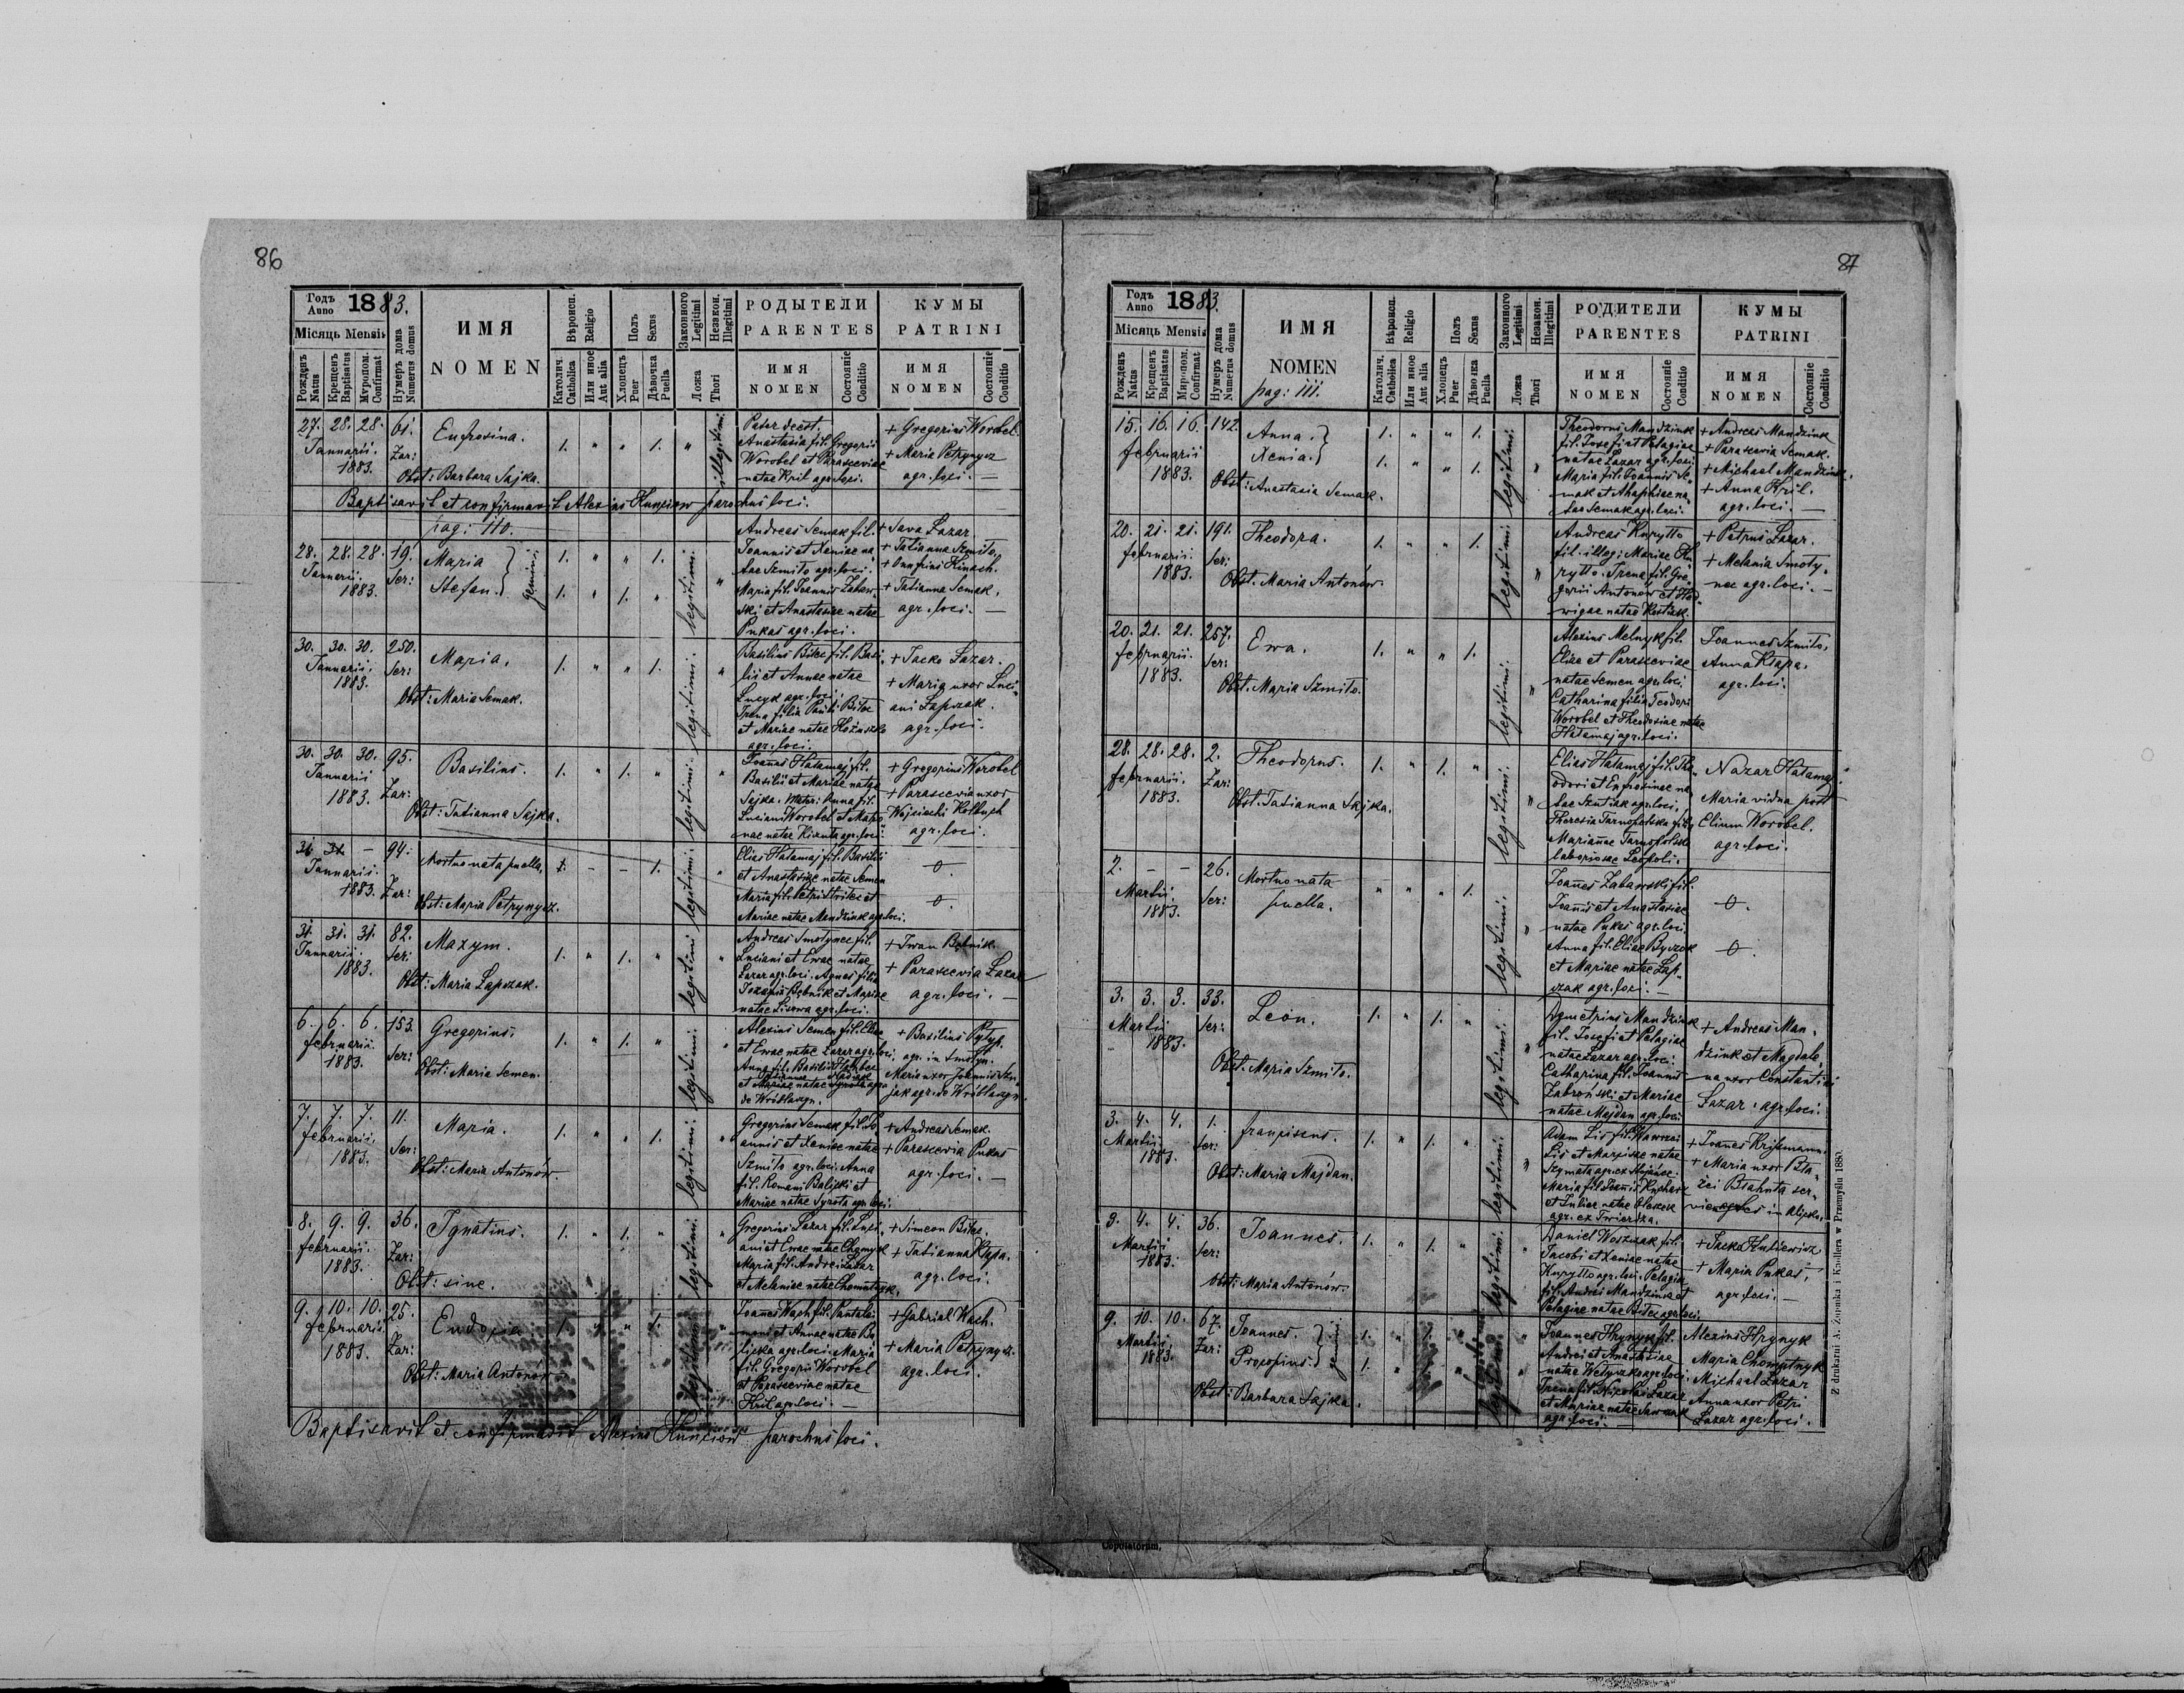 86
Годъ Anno 1883.
Місяць Mensis
Рожденъ Natus
Крещенъ Baptisatus
Мѵропом. Confirmat
Нумеръ дома Numerus domus
ИМЯ
NOMEN
Вѣроисп. Religio
Католич. Catholica
Или иное Aut alia
Полъ Sexus
Хлопець Puer
Дѣвочка Puella
Законного Legitimi
Незакон. Illegitimi
Ложа Thori
РОДЫТЕЛИ
PARENTES
ИМЯ NOMEN
Состояніе Conditio
КУМЫ
PATRINI
ИМЯ NOMEN
Состояніе Conditio
27. 28. 28. 61.
Januarii
1883.
Żar:
Eufrosina.
Obst: Barbara Sajka.
1. " " 1. "
illegitimi
Pater deest.
Anastasia fil. Gregorii
Worobel et Parasceviae
natae Kril agr. loci.
+ Gregorius Worobel
+ Maria Petrynycz
agr. loci. —
Baptisavit et confirmavit Alexius Kunciow parochus loci.
pag: 110.
28. 28. 28. 19.
Januarii.
1883.
Ser:
Maria
Stefan.
gemini
1. " " 1.
1. " 1. "
legitimi.
Andreas Semak fil.
Joannis et Xeniae na-
tae Szmilo agr. loci.
Maria fil. Joannis Zabaw-
ski et Anastasiae natae
Pukas agr. loci.
+ Sava Łazar
+ Tatianna Szmilo.
+ Onufrius Kinach.
+ Tatianna Semak.
agr. loci. —
30. 30. 30. 250.
Januarii.
1883.
Ser:
Maria.
Obst: Maria Semak.
1. " " 1.
legitimi.
Basilius Biłec fil. Basi-
lii et Annae natae
Łucyk agr. loci.
Irena filia Pauli Biłec
et Mariae natae
agr. loci.
+ Jacko Łazar.
+ Maria uxor Luci-
ani Łapszak.
agr. loci.
30. 30. 30. 95.
Januarii
1883.
Żar:
Basilius.
Obst: Tatianna Sajka.
1. " 1. "
legitimi.
Joannes Hałamaj fil.
Basilii et Mariae natae
Sajka. Mater: Anna fil.
Luciani Worobel et
natae agr. loci.
+ Gregorius Worobel
+ Parascevia uxor
Wojciechi Kolbuch
agr. loci.
31 31 — 94.
Januarii.
1883.
Żar:
Mortuo nata puella.
Obst: Maria Petrynycz.
1. - - 1.
legitimi.
Elias Hałamaj fil. Basilii
et Anastasiae natae Semen
Maria fil. Petri et
Mariae natae Mandziuk agr. loci.
0.
0.
31. 31. 31. 82.
Januarii.
1883.
Ser:
Maxym.
Obst: Maria Łapszak.
1. " 1. "
legitimi
Andreas Smolynec fil.
Luciani et Evae natae
Łazar agr. loci. Agnes filia
Josafii Bębnik et Mariae
natae Lisowa agr. loci.
+ Iwan Bębnik.
+ Parascevia Łazar
agr. loci. —
6. 6. 6. 153.
februarii.
1883.
Ser:
Gregorius.
Obst: Maria Semen.
1. " 1. "
legitimi.
Alexius Semen fil. Eliae
et Evae natae Łazar agr. loci,
Anna fil. Basilii
et Mariae natae
de Wróblaczyn.
+ Basilius Pylyp.
agr. in Smolyn.
Maria uxor Joannis
agr. de Wróblaczyn
7. 7. 7. 11.
februarii.
1883.
Ser:
Maria.
Obst: Maria Antonów.
1. " " 1.
legitimi.
Gregorius Semak fil. Jo-
annis et Xeniae natae
Szmilo agr. loci. Anna
fil. Romani Balicki et
Mariae natae Syrota agr. loci.
+ Andreas Semak.
+ Parascevia Pukas
agr. loci. —
8. 9. 9. 36.
februarii.
1883.
Żar:
Ignatius.
Obst: sine.
1. " 1. "
legitimi.
Gregorius Łazar fil. Luci-
ani et Evae natae Chomyk
Maria fil. Andrei Łazar
et Melaniae natae Chomutnyk.
+ Simeon Biłec.
+ Tatianna Kłapa.
agr. loci.
9. 10. 10. 25.
februarii
1883.
Żar:
Eudoxia
Obst: Maria Antonów
1. " " 1.
Joannes Wach fil. Pantalei-
moni et Annae natae Ba-
licka agr. loci. Maria
fil. Gregorii Worobel
et Parasceviae natae
Kril agr. loci. —
+ Gabriel Wach.
+ Maria Petrynycz.
agr. loci.
Baptisavit et confirmavit Alexius Kunciow parochus loci.
87
Годъ Anno 1883.
Місяць Mensis
Рожденъ Natus
Крещенъ Baptisatus
Миропом. Confirmat
Нумеръ дома Numerus domus
ИМЯ
NOMEN
pag: 111.
Вѣроисп. Religio
Католич. Catholica
Или иное Aut alia
Полъ Sexus
Хлопець Puer
Дѣвочка Puella
Законного Legitimi
Незакон. Illegitimi
Ложа Thori
РОДИТЕЛИ
PARENTES
ИМЯ NOMEN
Состояніе Conditio
КУМЫ
PATRINI
ИМЯ NOMEN
Состояніе Conditio
15. 16. 16. 142.
februarii
1883.
Anna.
Xenia.
Obst: Anastasia Semak.
1. " " 1.
1. " " 1.
legitimi.
Theodorus Mandziuk
fil. Josefi et Pelagiae
natae Łazar agr. loci.
Maria fil. Joannis Se-
mak et Ahaphiae na-
tae Semak agr. loci.
+ Andreas Mandziuk
+ Parascevia Semak.
+ Michael Mandziuk.
+ Anna Kril.
agr. loci. —
20. 21. 21. 191.
februarii.
1883.
Ser:
Theodora.
Obst. Maria Antonów.
1. " " 1.
legitimi.
Andreas Kuryłło
fil. illeg: Mariae Ku-
ryłło. Irena fil. Gre-
gorii Antonów et Hed-
wigae natae Kostiuk.
+ Petrus Łazar.
+ Melania Smoły-
nec agr. loci. —
20. 21. 21. 257.
februarii.
1883.
Ser:
Ewa.
Obst. Maria Szmilo.
1. " " 1.
legitimi.
Alexius Melnyk fil.
Eliae et Parasceviae
natae Semen agr. loci.
Catharina filia Teodori
Worobel et Theodosiae natae
Hałamaj agr. loci.
Joannes Szmilo.
Anna Kłapa.
agr. loci.
28. 28. 28. 2.
februarii.
1883.
Żar:
Theodorus.
Obst. Tatianna Sajka.
1. " 1. "
legitimi.
Elias Hałamaj fil. The-
odori et Eufrosinae na-
tae agr. loci,
Theresia Tarnopolska fil.
Mariannae Tarnopolska
laboriosae Leopoli.
Nazar Hałamaj
Maria vidua post
Elium Worobel.
agr. loci.
2. — — 26.
Martii
1883.
Ser:
Mortuo nata
puella.
" " " 1.
legitimi.
Joannes Zabawski fil.
Joannis et Anastasiae
natae Pukas agr. loci
Anna fil. Eliae Byczok
et Mariae natae Łap-
szak agr. loci. —
0.
0.
3. 3. 3. 33.
Martii
1883.
Ser:
Leon.
Obst. Maria Szmilo.
1. " 1. "
legitimi.
Dymetrius Mandziuk
fil. Josefi et Pelagiae
natae Łazar agr. loci.
Catharina fil. Joannis
Zabroński et Mariae
natae Majdan agr. loci
+ Andreas Man-
dziuk et Magdale-
na uxor Constantini
Łazar. agr. loci.
3. 4. 4. 1.
Martii.
1883.
Ser:
franciscus.
Obst: Maria Majdan.
1. " 1. "
legitimi.
Adam Lis fil. Wawrzci
Lis et Marysiae natae
Szymala agr. ex
Maria fil. Joannis
et Juliae natae
agr. ex Twierdza.
+ Joannes
+ Maria uxor Bla-
żei
in
3. 4. 4. 36.
Martii
1883.
Ser:
Joannes.
Obst: Maria Antonów.
1. " 1. "
legitimi.
Daniel Woszczak fil.
Jacobi et Xeniae natae
Kuryłło agr. loci. Pelagia
fil. Andrei Mandziuk et
Pelagiae natae Biłec agr. loci.
+ Jacko
+ Maria Pukas,
agr. loci. —
9. 10. 10. 67.
Martii
1883.
Żar:
Joannes.
Procopius.
gemini
Obst: Barbara Sajka.
1. " 1. "
1. " 1. "
legitimi
Joannes Hrynyk fil.
Andrei et Anastasiae
natae agr. loci.
Irena fil. Nicolai Łazar
et Mariae natae
agr. loci. —
Alexius Hrynyk
Maria Chomutnyk
Michael Łazar
Anna uxor Petri
Łazar agr. loci.
Z drukarni A. Żupnika i Knollera w Przemyślu 1880.
Copulatorum.